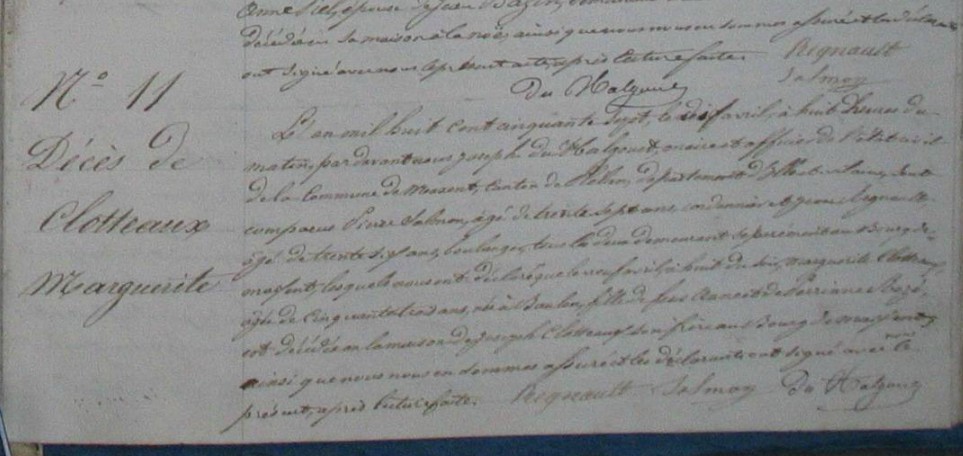 décédée en sa maison à la noë, ainsi que nous nous en sommes assuré et les déclarants
ont signé avec nous le présent acte, après lecture faite. Regnault
Salmon
du Halgouet
N° 11
Décès de
Clotteaux
Marguerite
L'an mil huit cent cinquante sept le dix avril, à huit heures du
matin, par devant nous Joseph du Halgouet, maire et officier de l'état civil
de la Commune de Maxent, Canton de Plélan, département d'Ille et vilaine, sont
comparus Pierre Salmon, âgé de trente sept ans, cordonnier et Jean Regnault
âgé de trente six ans, boulanger, tous les deux demeurant séparément au Bourg de
maxent, lesquels nous ont déclaré que le neuf avril, à huit du soir, Marguerite Clotteaux
âgée de Cinquante trois ans, née à Baulon, fille de feus et de Perrine
est décédée en la maison de Joseph Clotteaux son frère au Bourg de maxent,
ainsi que nous nous en sommes assuré et les déclarants ont signé avec le
présent, après lecture faite. Regnault Salmon du Halgouet